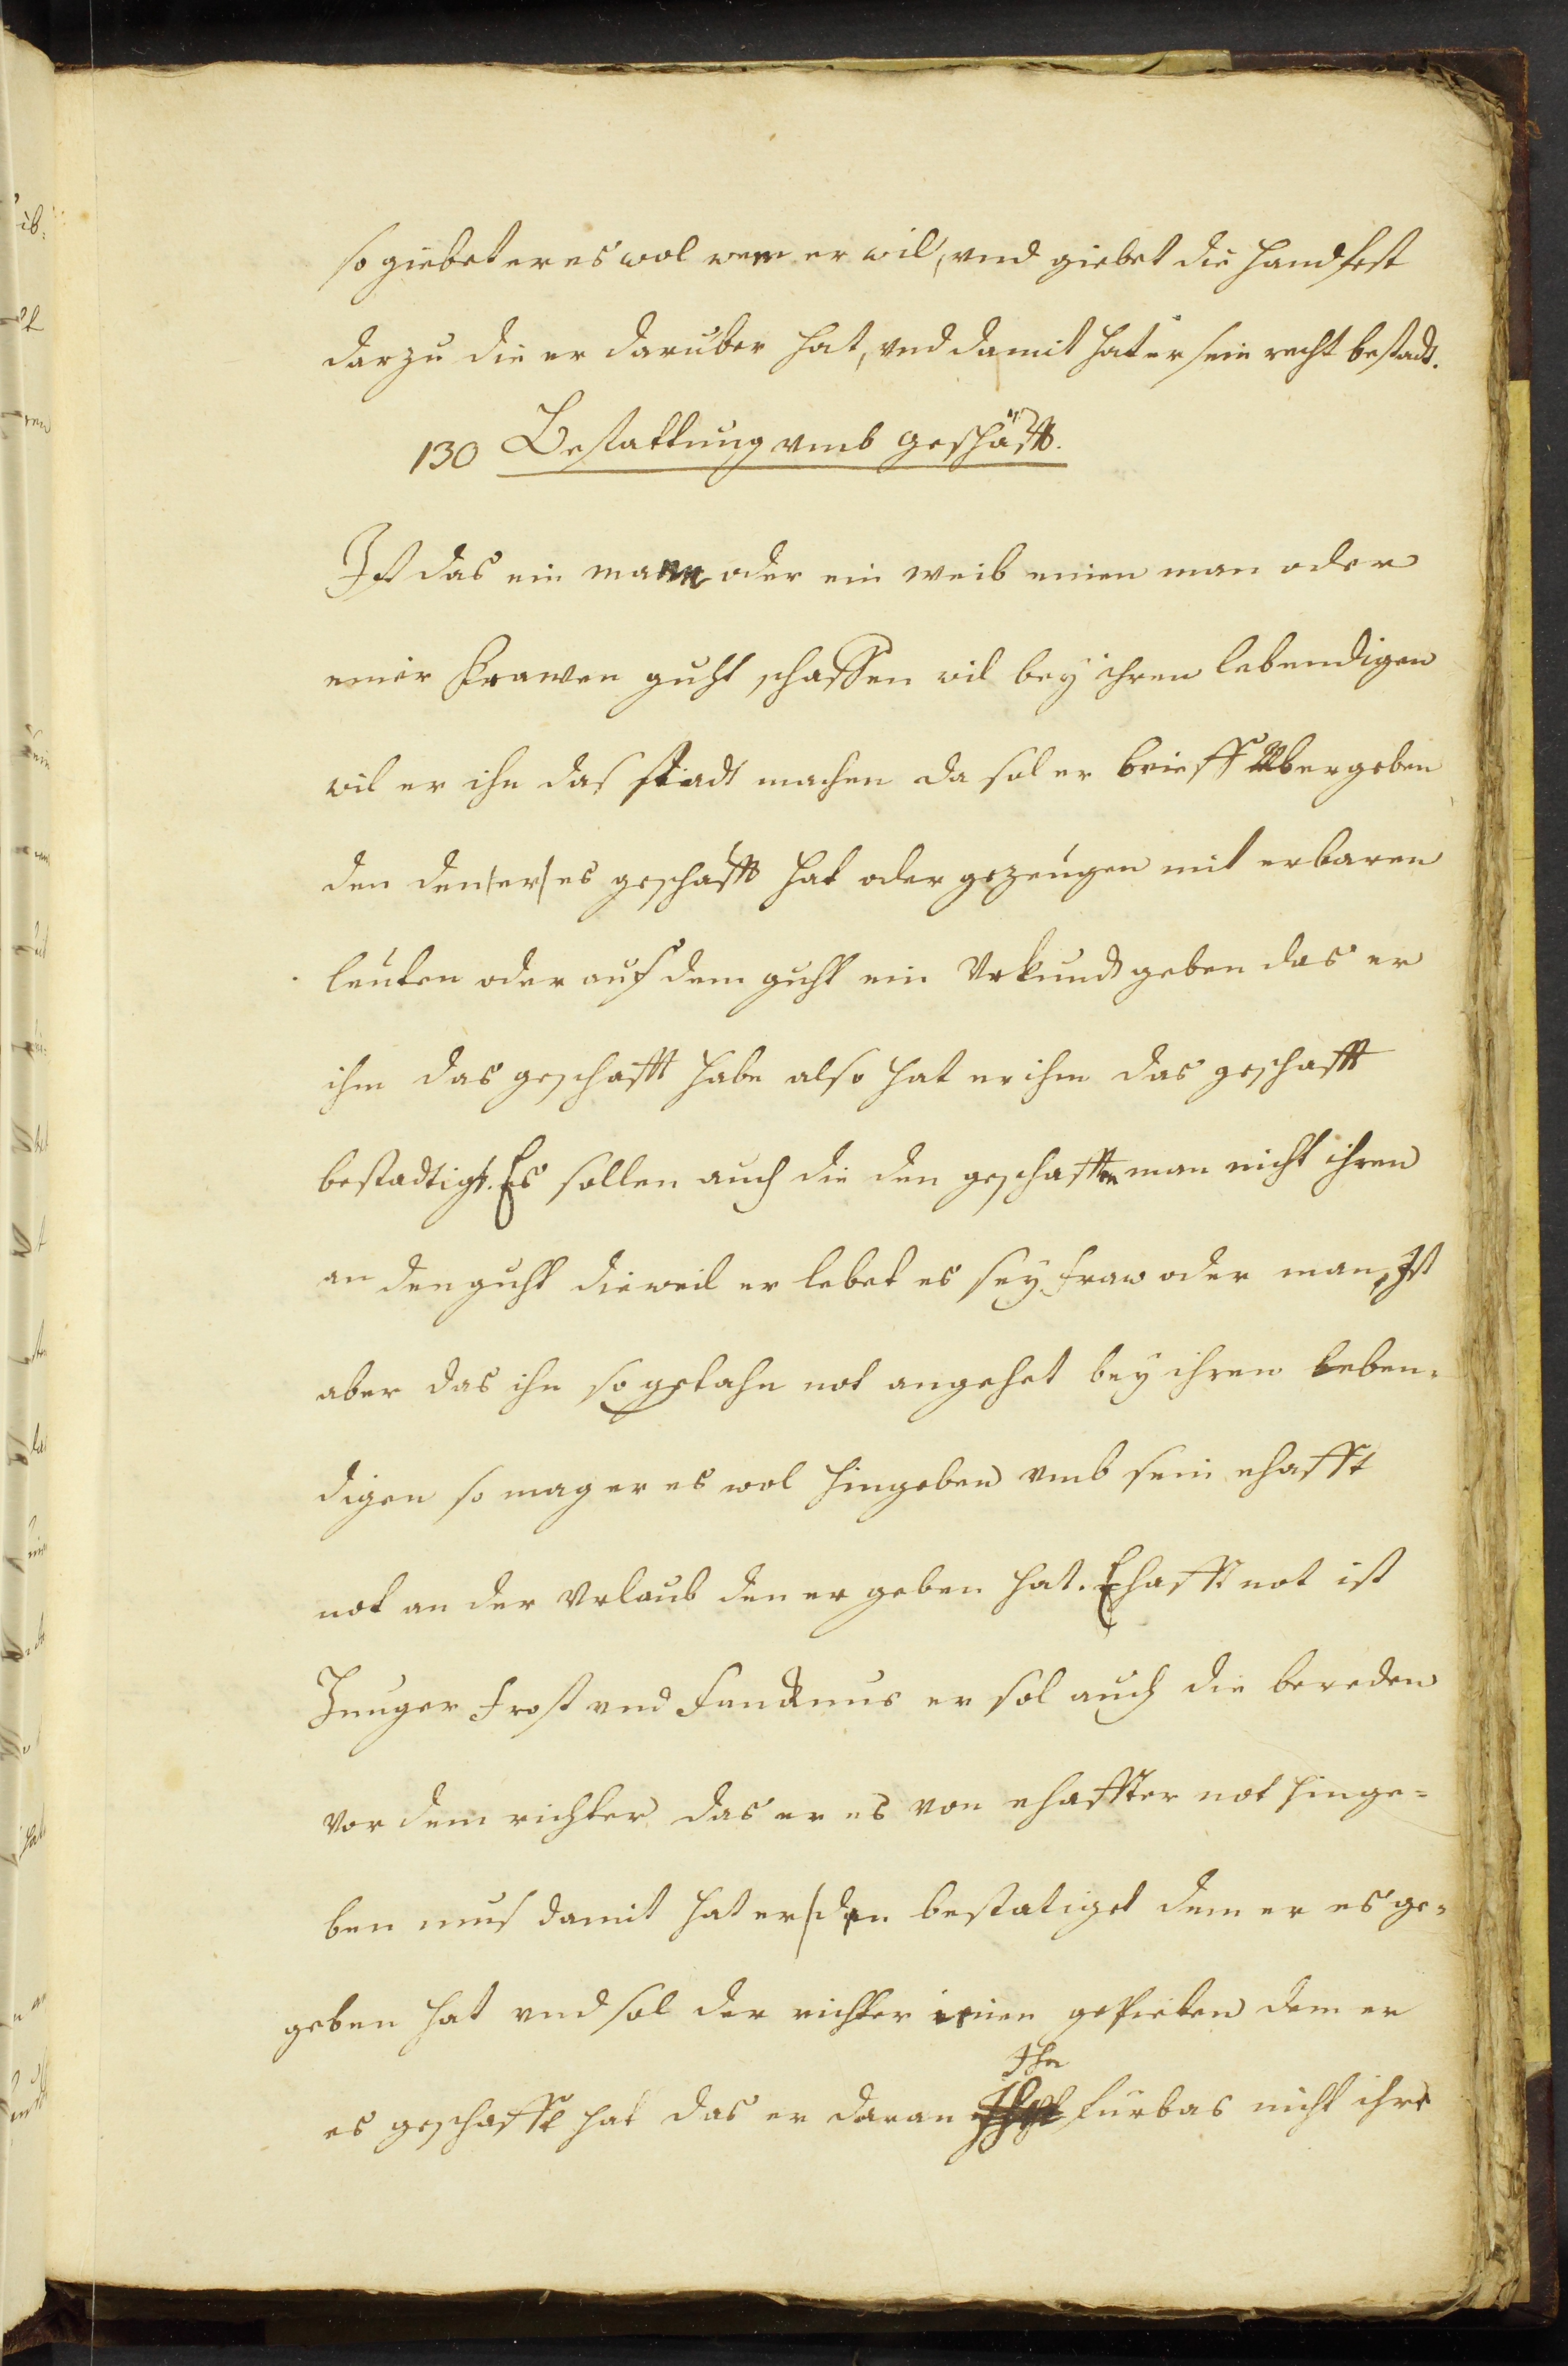 so giebet er es wol wem er wil, vnd giebet die handfest
darzu die er daruber hat, vnd damit hat er sein recht bestadt.
130 Bestattung vmb geschäfft.
Ist das ein mann oder ein weib einen man oder
einer Frawen guht schaffen wil bey ihren lebendigen
wil er ihn das stadt machen da sol er brieff Vbergeben
den den er es geschafft hat oder gezeugen mit erbaren
leuten oder auf dem guht ein Vrkundt geben das er
ihm das geschafft habe also hat er ihm das geschafft
bestadtigt. Es sollen auch die den geschafften man nicht ihren
an den guht dieweil er lebet es sey fraw oder man, Ist
aber das ihn so getahn not angehet bey ihren leben-
digen so mag er es wol hingeben vmb sein ehafft
not an der Vrlaub den er geben hat. Ehafft not ist
Hunger frost vnd Fancknus er sol auch die bereden
vor dem richter das er es von ehaffter not hinge-
ben mus damit hat er den bestatiget dem er es ge-
geben hat vnd sol der richter ienen gepieten dem er
Ihn
es geschafft hat das er daran furbas nicht ihre